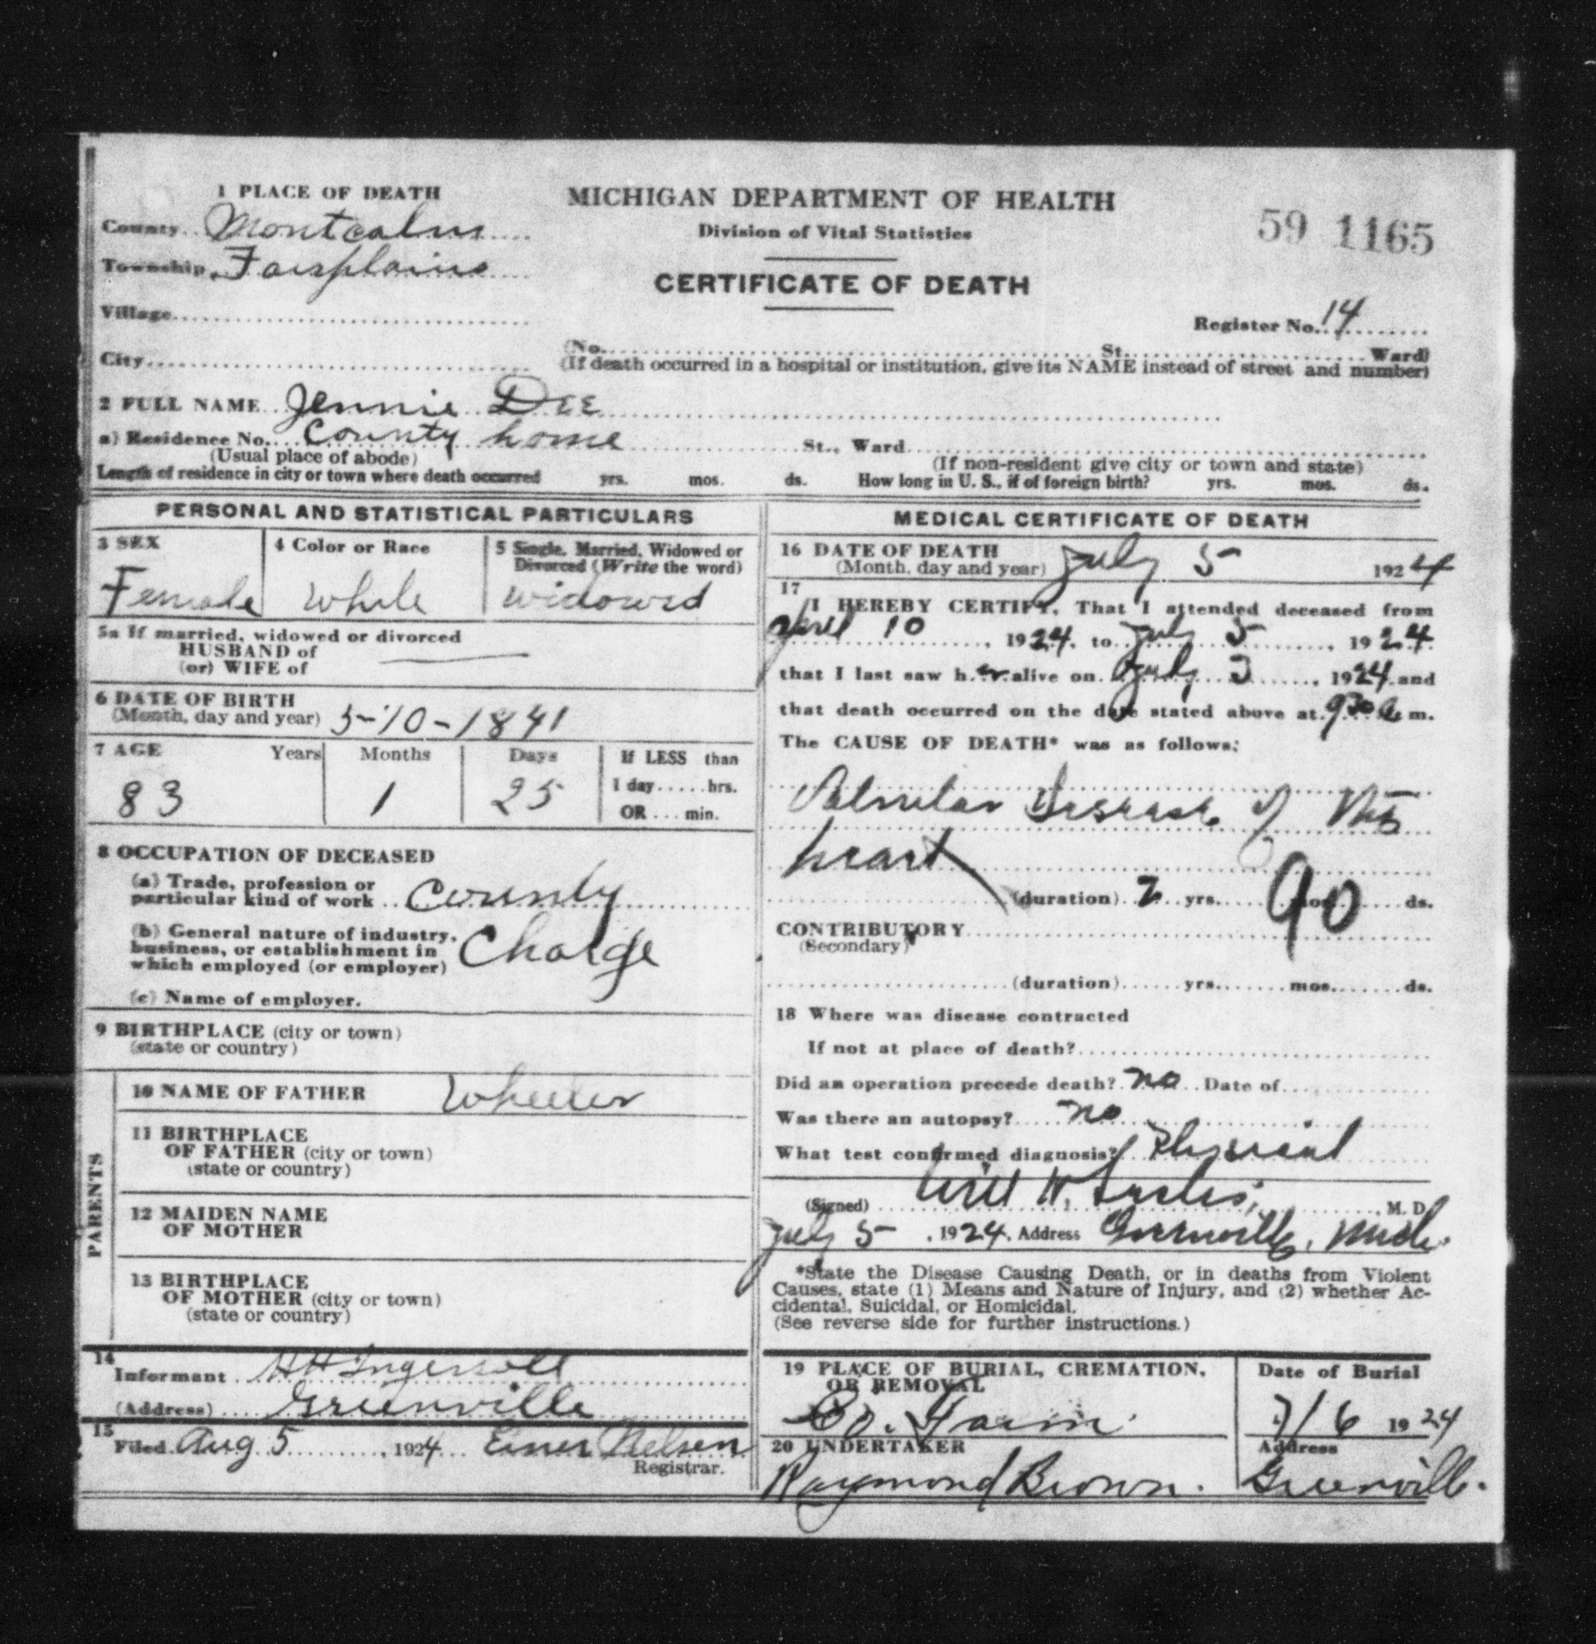 1 PLACE OF DEATH
County Montcalm
Township Fairplains
Village
City
MICHIGAN DEPARTMENT OF HEALTH
Division of Vital Statistics
CERTIFICATE OF DEATH
59 1165
Register No. 14
(No. St. Ward)
(If death occurred in a hospital or institution, give its NAME instead of street and number)
2 FULL NAME Jennie Dee
a) Residence No. County home St., Ward
(Usual place of abode) (If non-resident give city or town and state)
Length of residence in city or town where death occurred yrs. mos. ds. How long in U. S., if of foreign birth? yrs. mos. ds.
PERSONAL AND STATISTICAL PARTICULARS
3 SEX 4 Color or Race 5 Single, Married, Widowed or
Divorced (Write the word)
Female White Widowed
5a If married, widowed or divorced
HUSBAND of
(or) WIFE of
6 DATE OF BIRTH
(Month, day and year) 5-10-1841
7 AGE Years Months Days If LESS than
1 day hrs.
OR min.
83 1 25
8 OCCUPATION OF DECEASED
(a) Trade, profession or
particular kind of work County
(b) General nature of industry,
business, or establishment in
which employed (or employer) Charge
(c) Name of employer.
9 BIRTHPLACE (city or town)
(state or country)
PARENTS
10 NAME OF FATHER Wheeler
11 BIRTHPLACE
OF FATHER (city or town)
(state or country)
12 MAIDEN NAME
OF MOTHER
13 BIRTHPLACE
OF MOTHER (city or town)
(state or country)
14
Informant H H Ingersoll
(Address) Greenville
15
Filed Aug 5, 1924 Einer Nelsen
Registrar.
MEDICAL CERTIFICATE OF DEATH
16 DATE OF DEATH
(Month, day and year) July 5 1924
17
I HEREBY CERTIFY, That I attended deceased from
April 10, 1924, to July 5, 1924
that I last saw her alive on July 3, 1924 and
that death occurred on the date stated above at 9 30 a m.
The CAUSE OF DEATH* was as follows:
Valvular Disease of the
heart
(duration) 2 yrs. mos. ds.
90
CONTRIBUTORY
(Secondary)
(duration) yrs. mos. ds.
18 Where was disease contracted
If not at place of death?
Did an operation precede death? no Date of
Was there an autopsy? no
What test confirmed diagnosis? Physical
(Signed) Will H. , M. D.
July 5, 1924, Address Greenville, Mich.
*State the Disease Causing Death, or in deaths from Violent
Causes, state (1) Means and Nature of Injury, and (2) whether Ac-
cidental, Suicidal, or Homicidal.
(See reverse side for further instructions.)
19 PLACE OF BURIAL, CREMATION,
OR REMOVAL
Co. Farm
Date of Burial
7/6 1924
20 UNDERTAKER
Raymond Brown.
Address
Greenville.